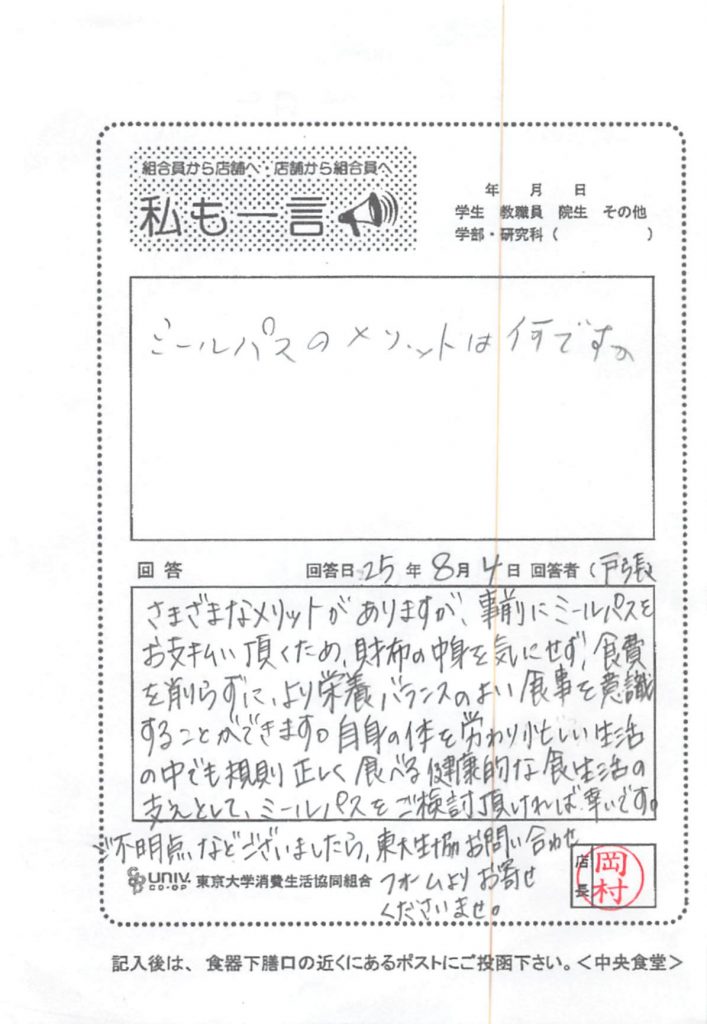 組合員から店舗へ・店舗から組合員へ
私も一言
年 月 日
学生 教職員 院生 その他
学部・研究科（ ）
ミールパスのメリットは何ですか
回答 回答日 25年 8月 4日 回答者（戸張
さまざまなメリットがありますが、事前にミールパスを
お支払い頂くため、財布の中身を気にせず、食費
を削らずに、より栄養バランスのよい食事を意識
することができます。自身の体を労わり忙しい生活
の中でも規則正しく食べる健康的な食生活の
支えとして、ミールパスをご検討頂ければ幸いです。
ご不明点などございましたら、東大生協お問い合わせ
フォームよりお寄せ
くださいませ。
UNIV. CO-OP 東京大学消費生活協同組合
店長 岡村
記入後は、食器下膳口の近くにあるポストにご投函下さい。＜中央食堂＞